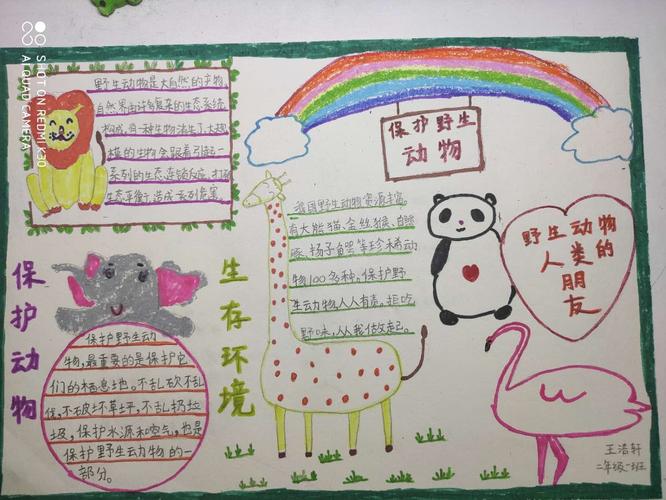 SHOT ON REDMI K30
AI QUAD CAMERA
野生动物是大自然的产物
自然界由许多复杂的生态系统
构成,当一种生物消失了,大规
模的生物会跟着引起一
系列的生态连锁反应,打破
生态平衡,造成一系列危害
保护野生
动物
我国野生动物资源丰富。
有大熊猫、金丝猴、白鳍
豚、扬子鳄等珍稀动
物100多种。保护野
生动物人人有责。拒吃
野味,从我做起。
野生动物
人类的
朋友
保护动物
生存环境
保护野生动
物,最重要的是保护它
们的栖息地。不乱砍不乱
伐,不破坏草坪,不乱扔垃
圾,保护水源和空气,也是
保护野生动物的一
部分。
王浩轩
二年级一班